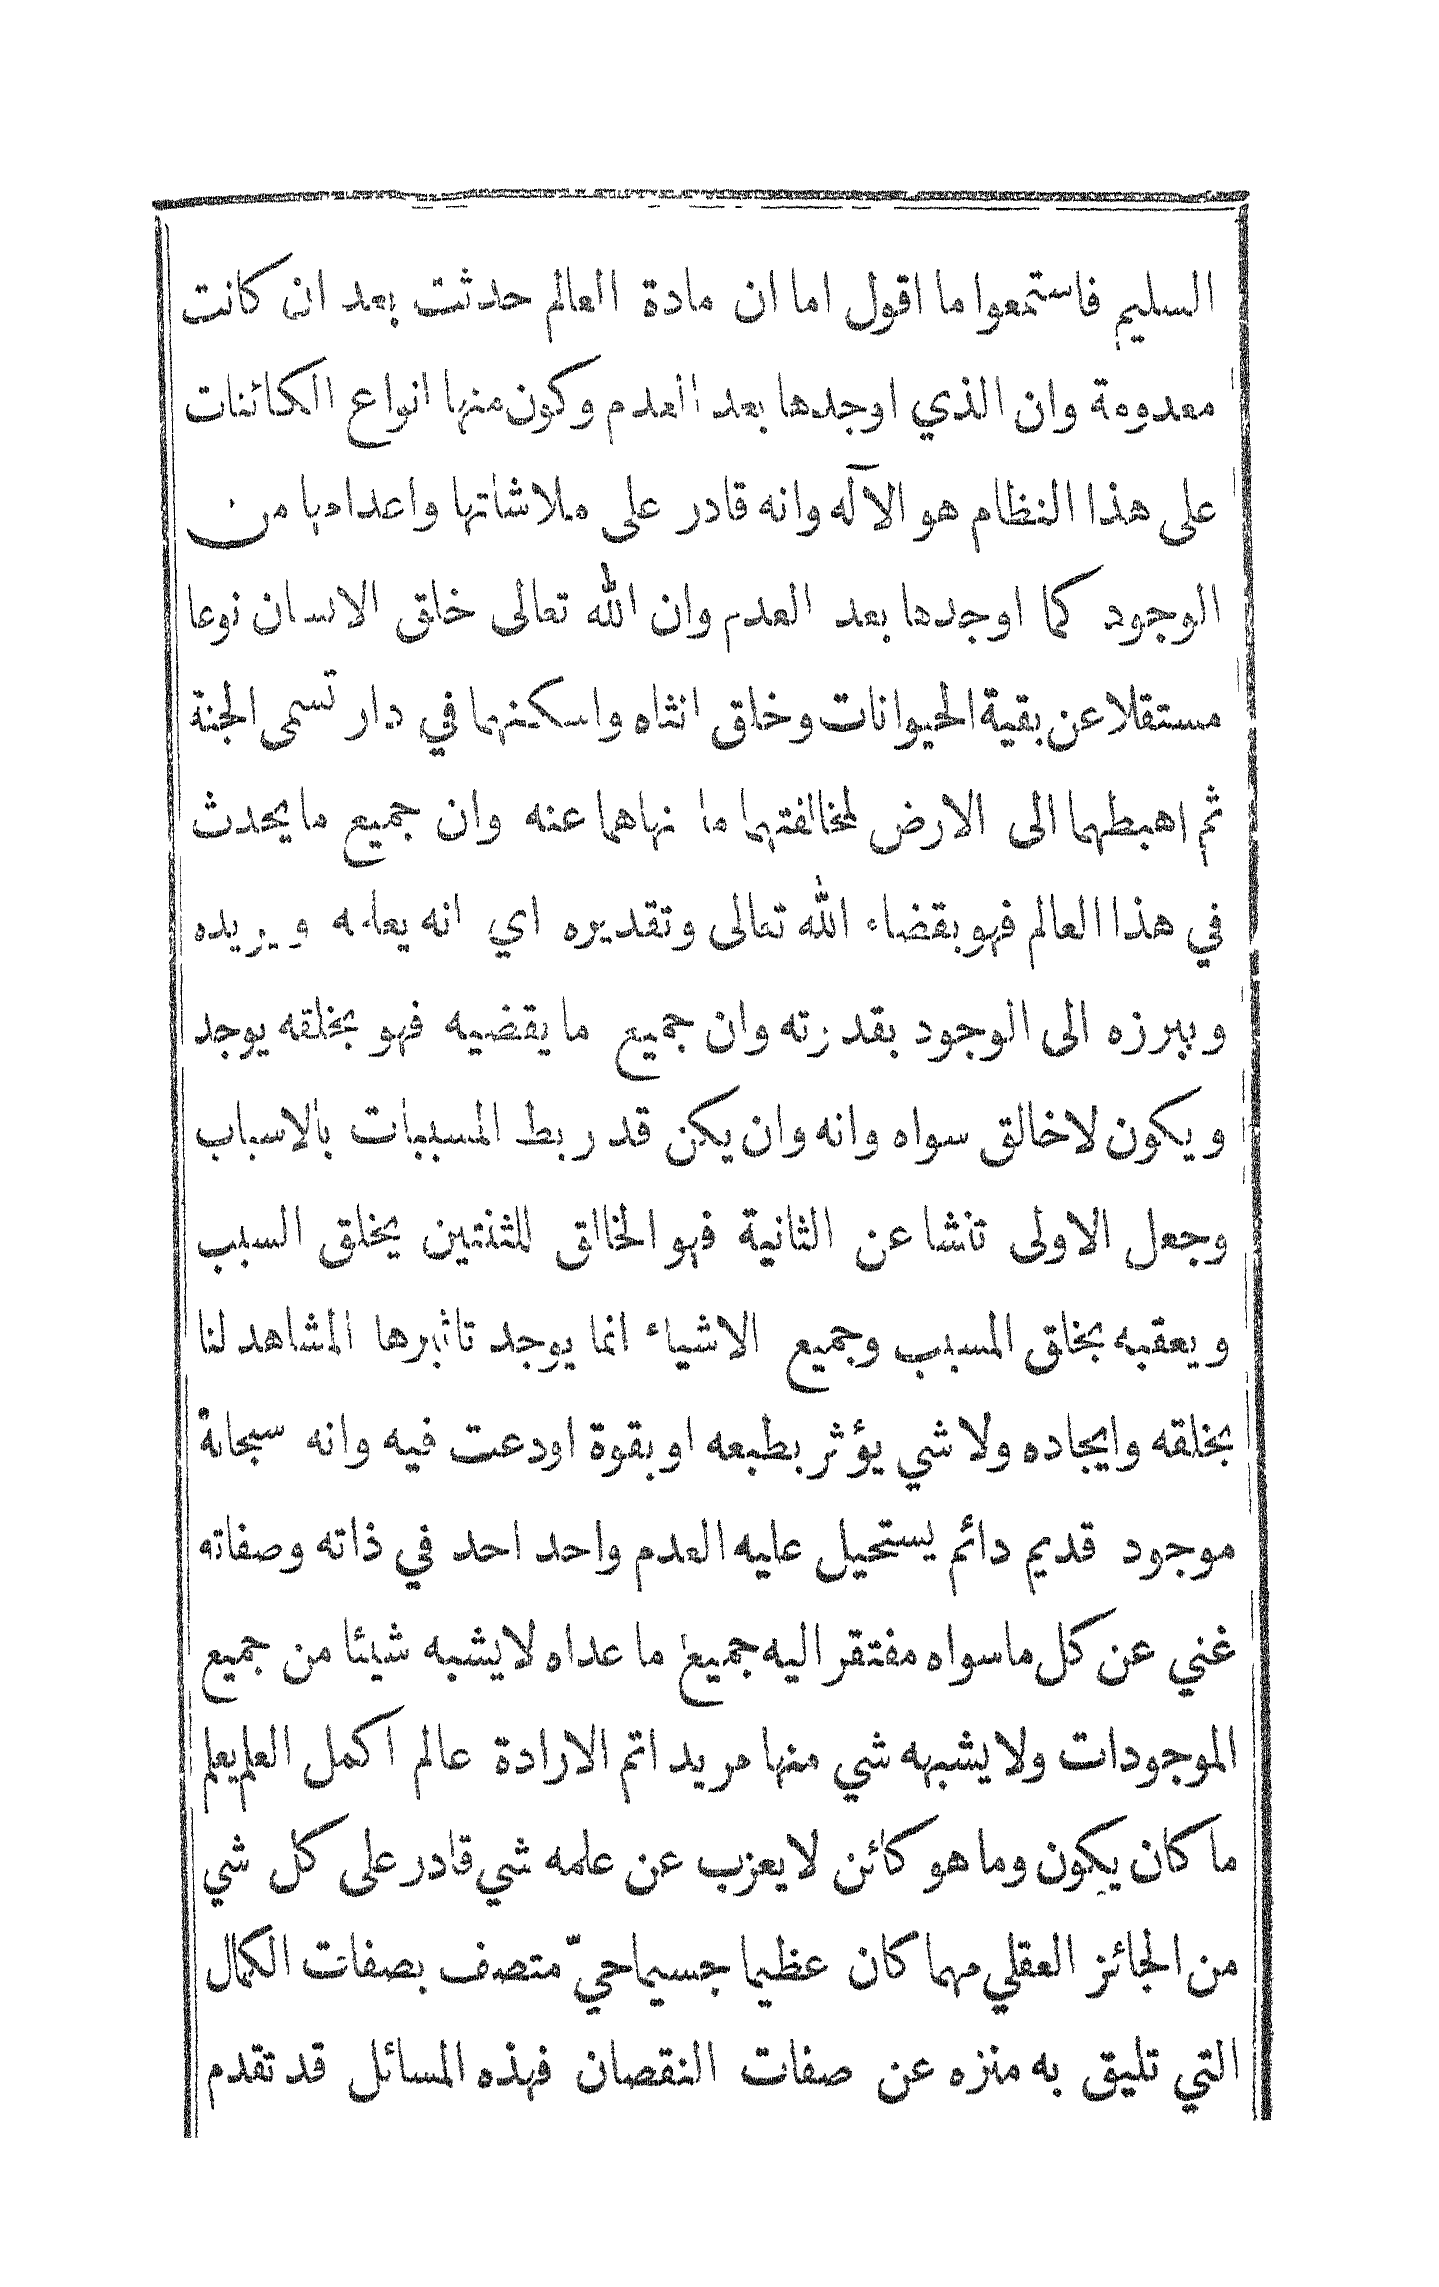 السليم فاستمعوا ما اقول اما ان مادة العالم حدثت بعد ان كانت
معدومة وان الذي اوجدها بعد العدم وكون منها انواع الكائنات
على هذا النظام هو الآله وانه قادر على ملاشاتها واعدامها من
الوجود كما اوجدها بعد العدم وان الله تعالى خلق الانسان نوعا
مستقلا عن بقية الحيوانات وخلق انثاه واسكنهما في دار تسمى الجنة
ثم اهبطهما الى الارض لمخالفتهما ما نهاهما عنه وان جميع ما يحدث
في هذا العالم فهو بقضاء الله تعالى وتقديره اي انه يعلمه ويريده
ويبرزه الى الوجود بقدرته وان جميع ما يقضيه فهو بخلقه يوجد
ويكون لا خالق سواه وانه وان يكن قد ربط المسببات بالاسباب
وجعل الاولى تنشا عن الثانية فهو الخالق للثنتين يخلق السبب
ويعقبه بخلق المسبب وجميع الاشياء انما يوجد تاثيرها المشاهد لنا
بخلقه وايجاده ولا شي يؤثر بطبعه او بقوة اودعت فيه وانه سبحانه
موجود قديم دائم يستحيل عليه العدم واحد احد في ذاته وصفاته
غني عن كل ما سواه مفتقر اليه جميع ما عداه لا يشبه شيئا من جميع
الموجودات ولا يشبهه شي منها مريد اتم الارادة عالم اكمل العلم يعلم
ما كان يكون وما هو كائن لا يعزب عن علمه شي قادر على كل شي
من الجائز العقلي مهما كان عظيما جسيما حيّ متصف بصفات الكمال
التي تليق به منزه عن صفات النقصان فهذه المسائل قد تقدم